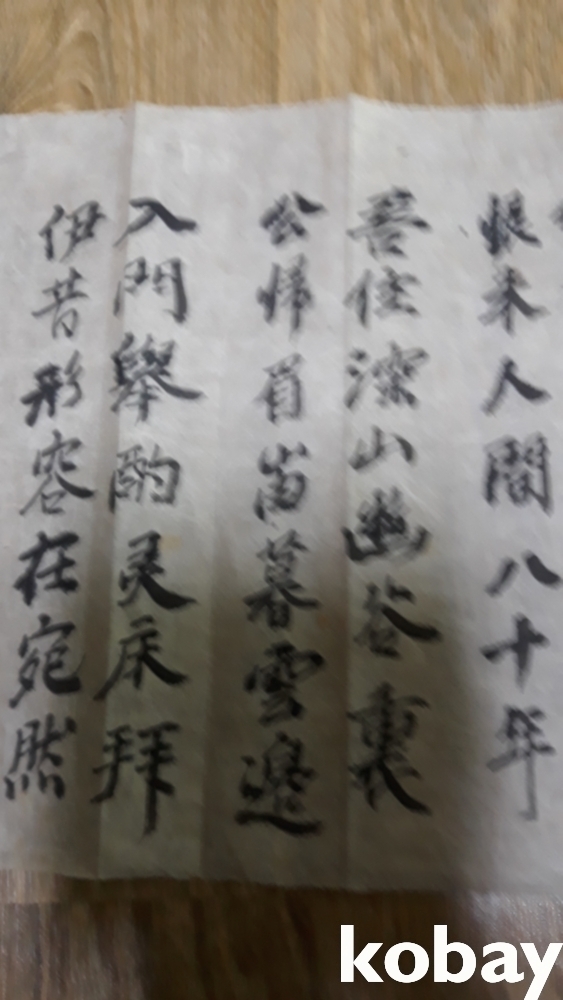 來人間八十年
吾住深山幽谷裏
公歸首崗暮雲邊
入門擧酌灵床拜
伊昔形容在宛然
kobay